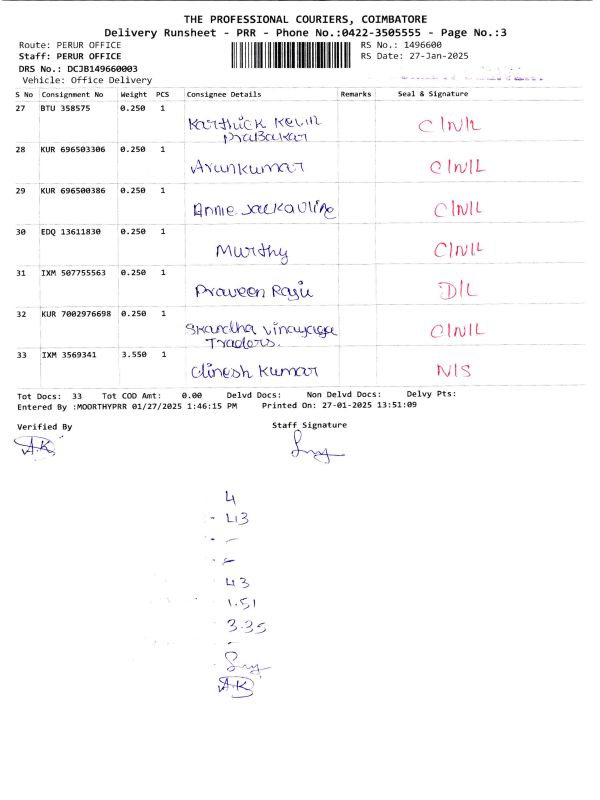 THE PROFESSIONAL COURIERS, COIMBATORE
Delivery Runsheet - PRR - Phone No.:0422-3505555 - Page No.:3
Route: PERUR OFFICE RS No.: 1496600
Staff: PERUR OFFICE RS Date: 27-Jan-2025
DRS No.: DCJB149660003
Vehicle: Office Delivery
S No Consignment No Weight PCS Consignee Details Remarks Seal & Signature
27 BTU 358575 0.250 1 Karthick Kevin C/N/L
Prabakar
28 KUR 696503306 0.250 1 Arunkumar C/N/L
29 KUR 696500386 0.250 1 Annie Jackauline C/N/L
30 EDQ 13611830 0.250 1 Murthy C/N/L
31 IXM 507755563 0.250 1 Praveen Raju D/L
32 KUR 7002976698 0.250 1 Skandha Vinayaga C/N/L
Traders.
33 IXM 3569341 3.550 1 Dinesh Kumar N/S
Tot Docs: 33 Tot COD Amt: 0.00 Delvd Docs: Non Delvd Docs: Delvy Pts:
Entered By :MOORTHYPRR 01/27/2025 1:46:15 PM Printed On: 27-01-2025 13:51:09
Verified By Staff Signature
A.K
4
- 43
-
-
43
1.51
3.35
-
A.K